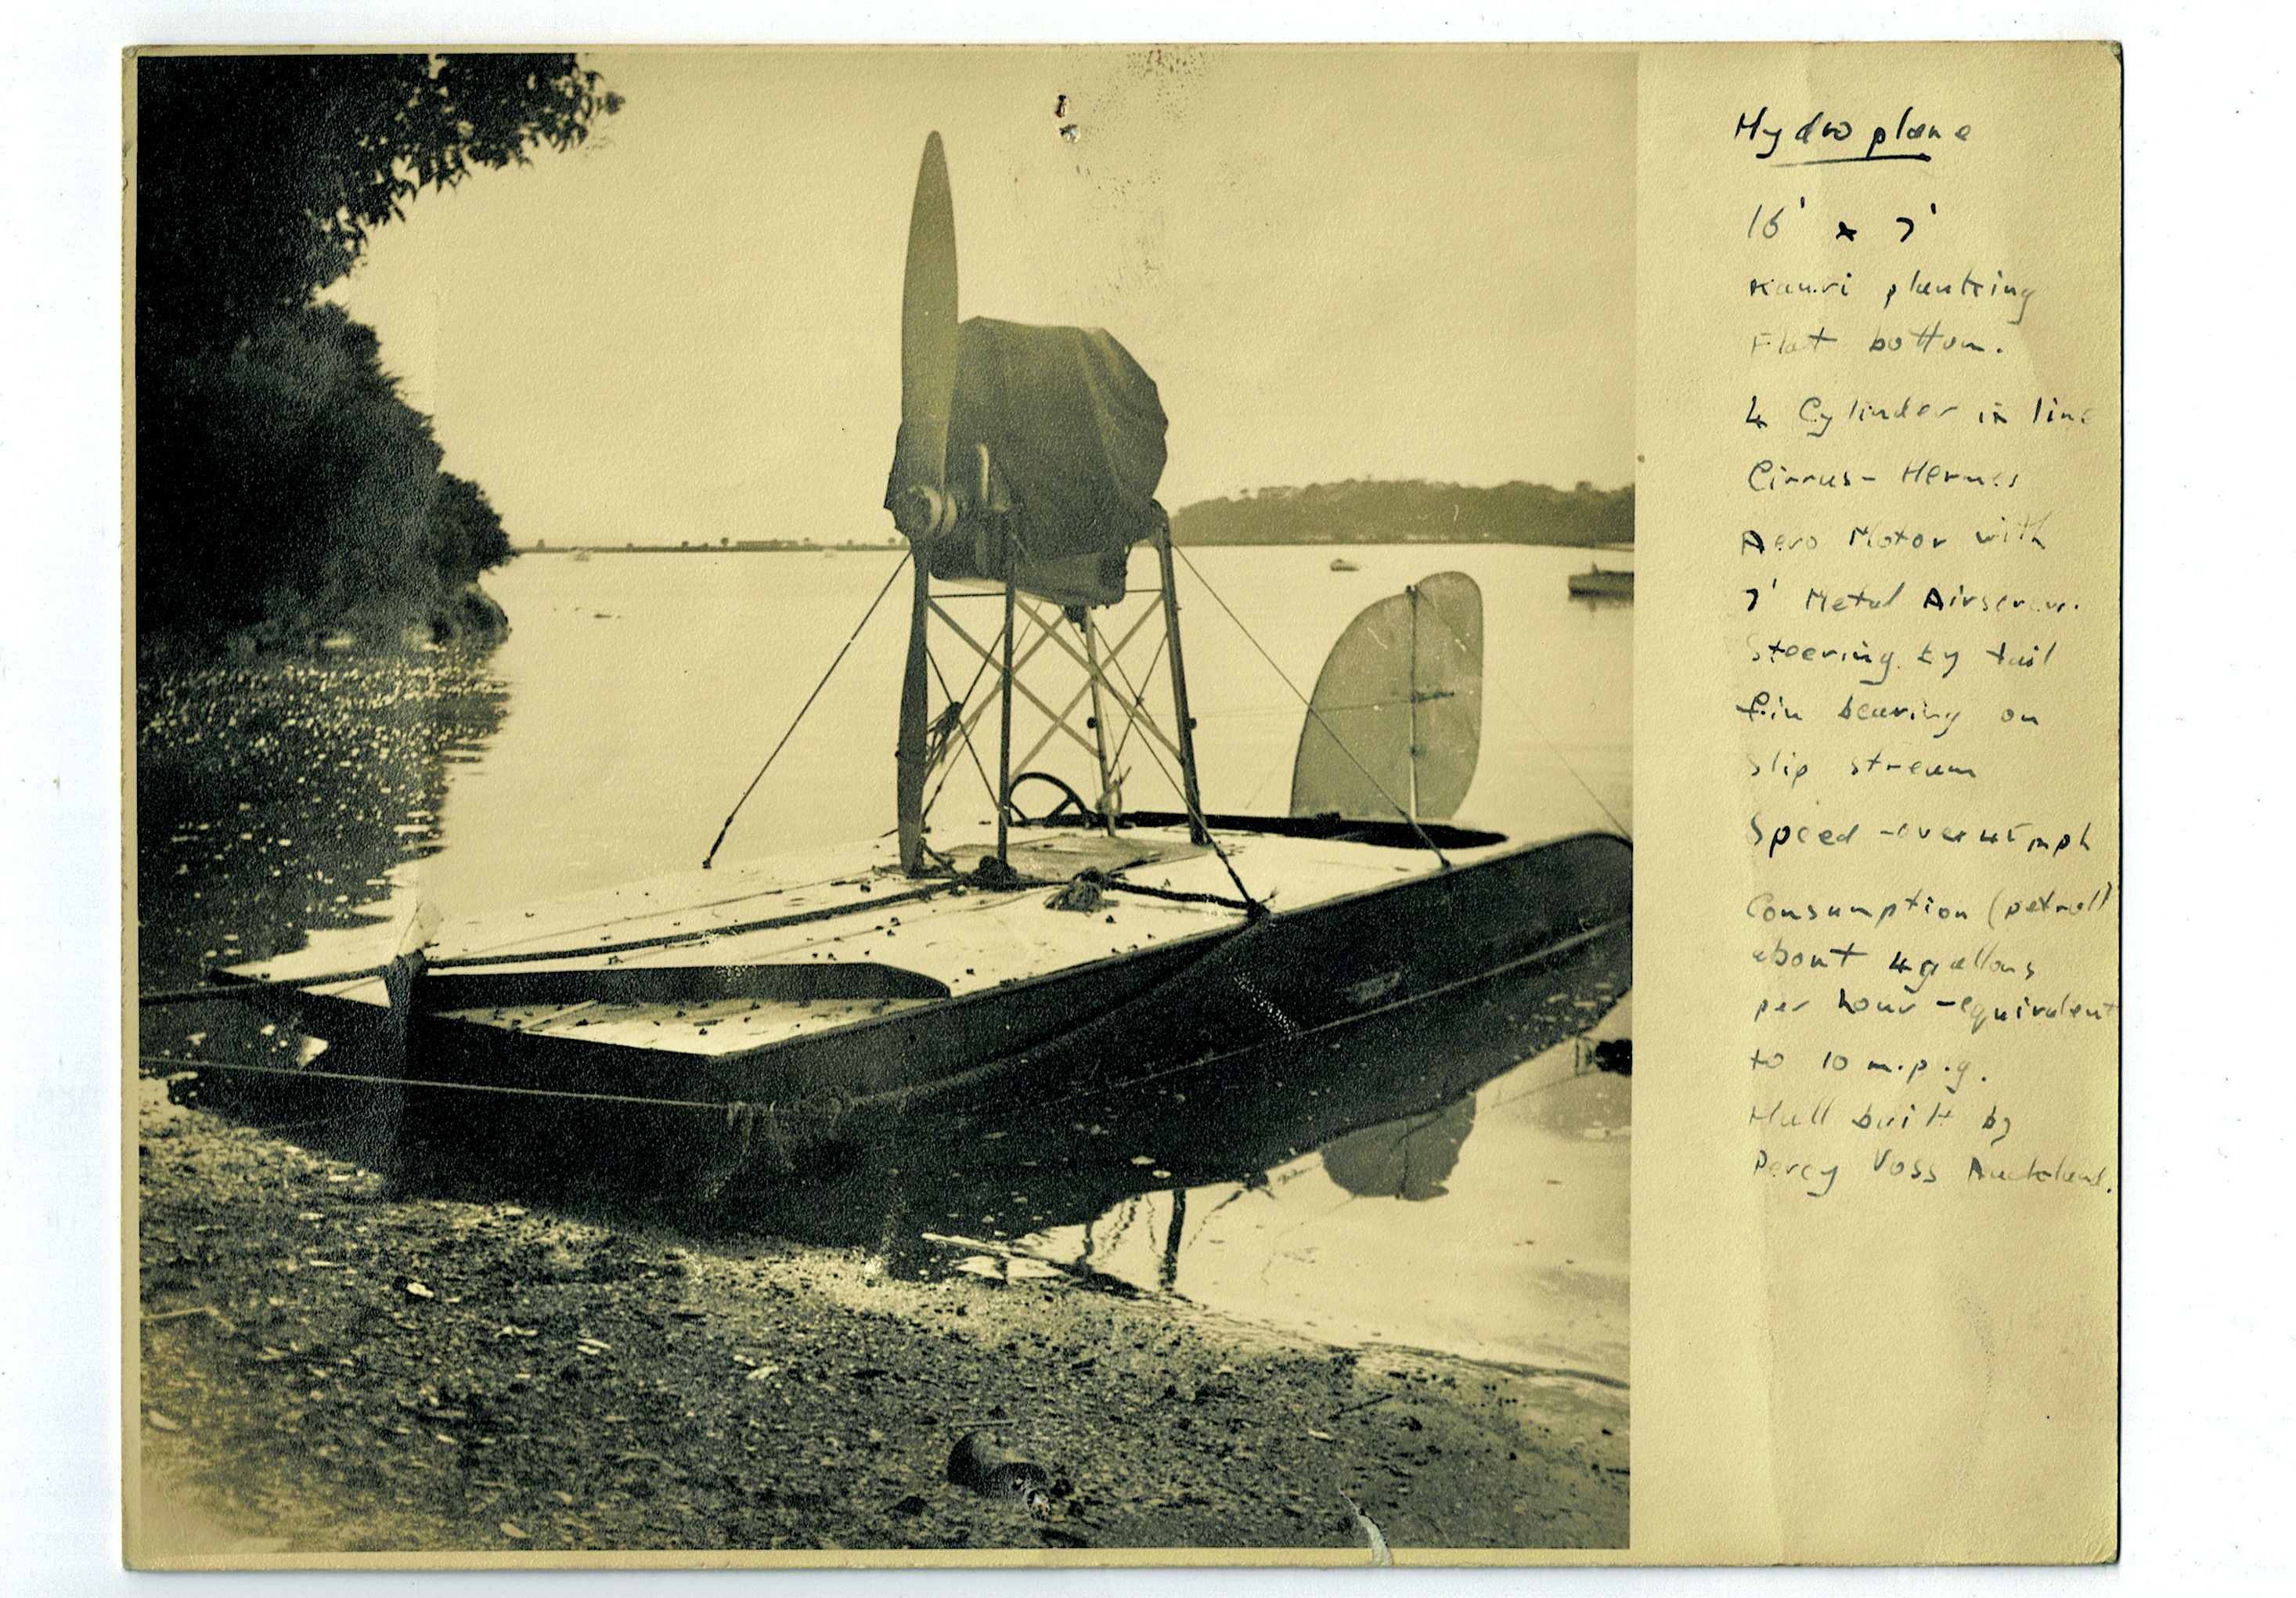 Hydroplane
16' x 7'
Kauri planking
Flat bottom.
4 Cylinder in line
Cirrus-Hermes
Aero Motor with
7' Metal Airscrew.
Steering by tail
fin bearing on
slip stream
Speed - over 45 mph
Consumption (petrol)
about 4 gallons
per hour - equivalent
to 10 m.p.g.
Hull built by
Percy Voss Auckland.